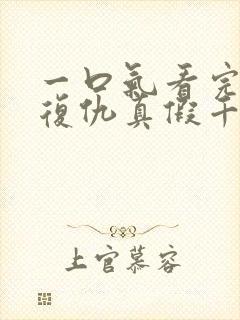 一口氣看完
復仇真假千
上官慕容